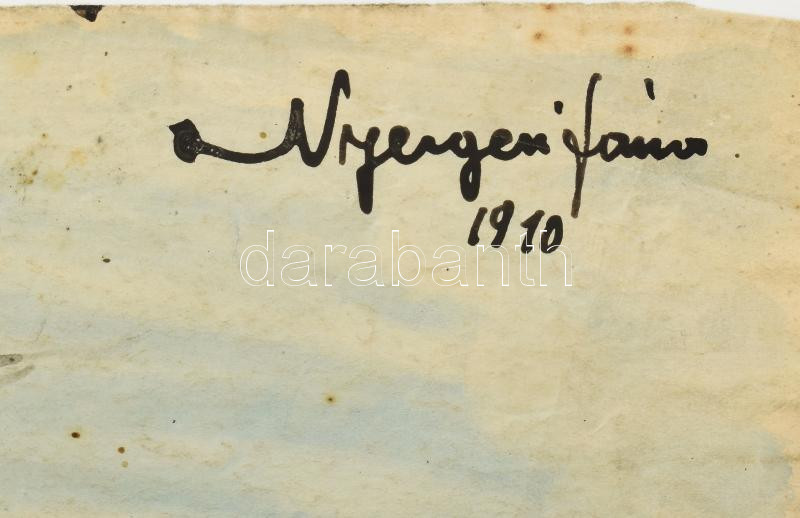 Nyergesi János
1910
darabanth